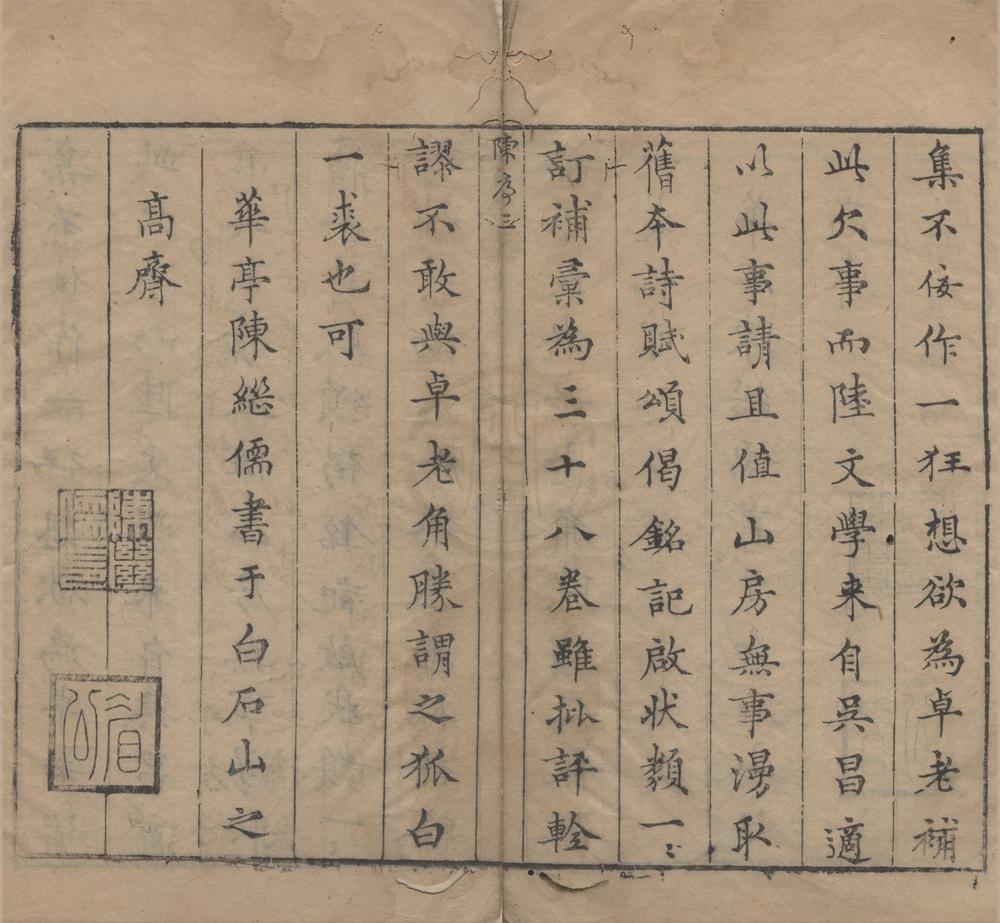 集不佞作一狂想欲為卓老補
此欠事而陸文學来自吳昌適
以此事請且值山房無事漫取
舊本詩賦頌偈銘記啟状類一〻
訂補彙為三十八卷雖批評輇
陳序三
謬不敢與卓老角勝謂之狐白
一裘也可
華亭陳繼儒書于白石山之
高齋
陳繼儒印
眉公